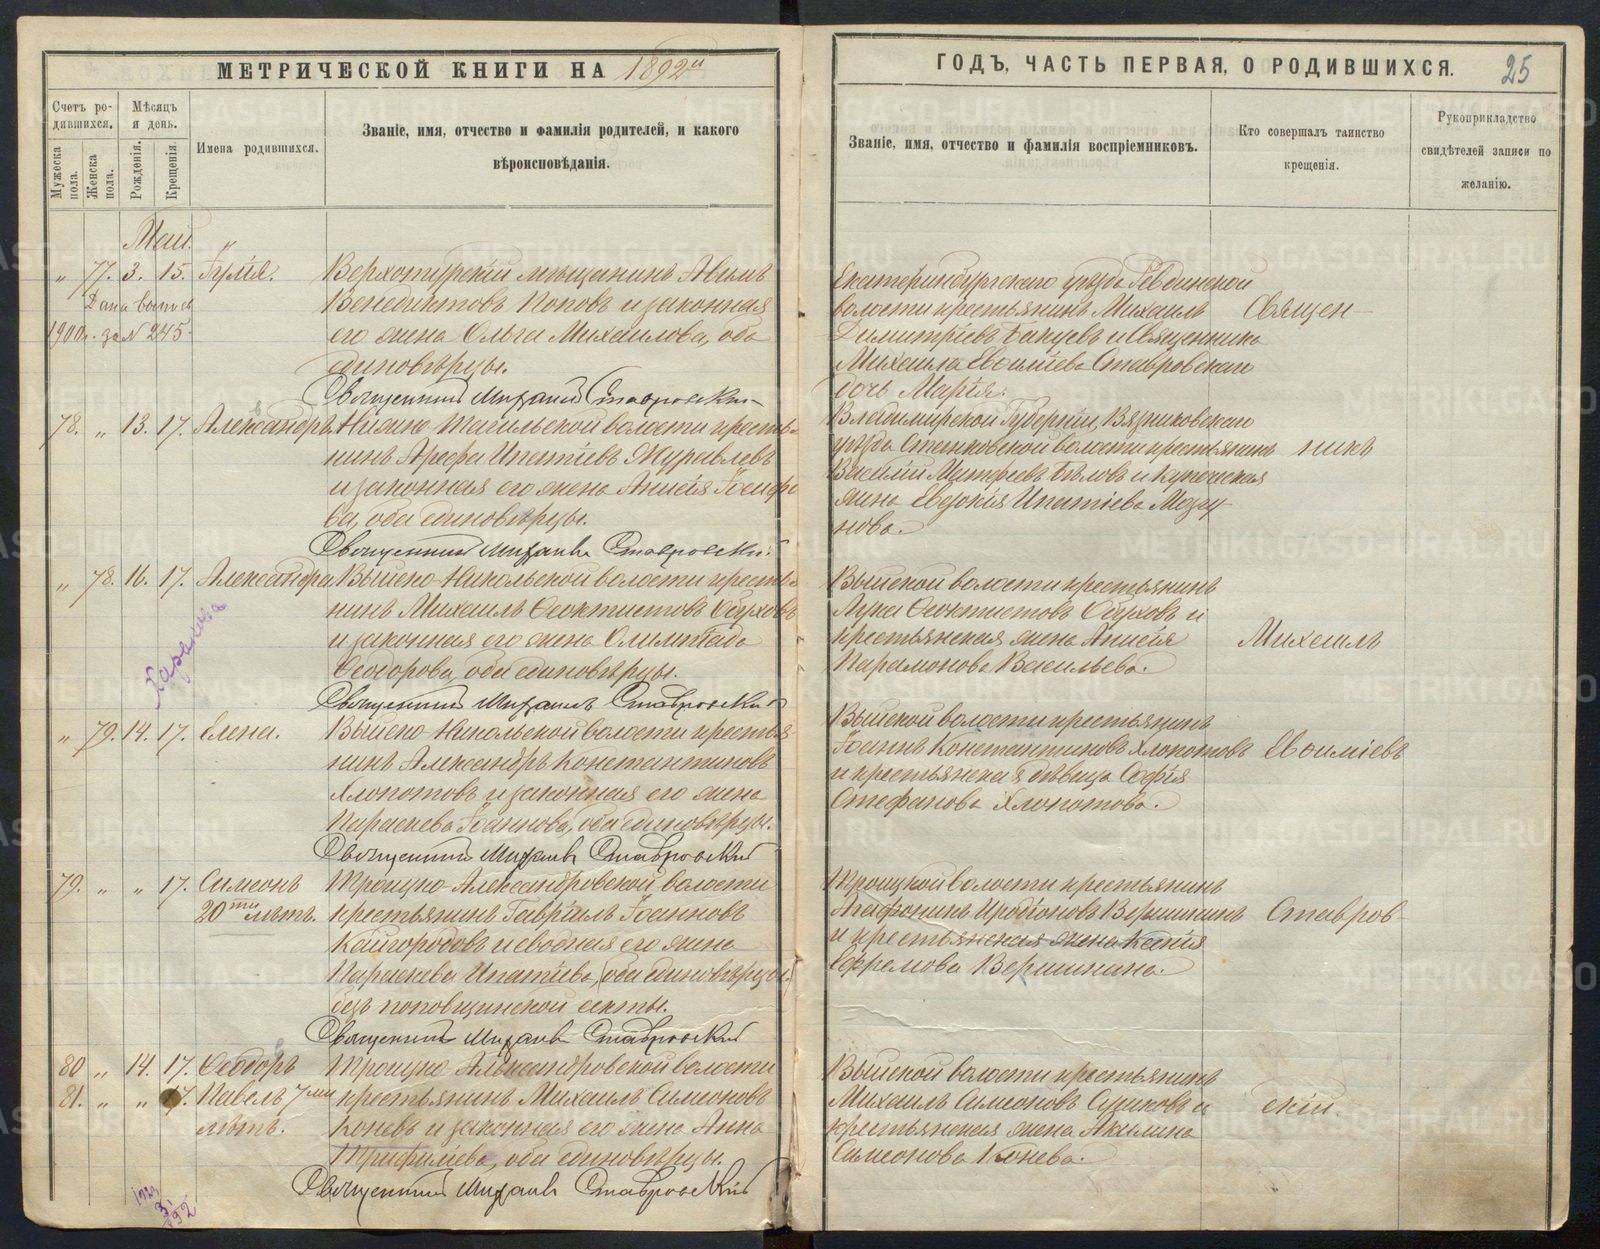 МЕТРИЧЕСКОЙ КНИГИ НА 1892й
Счетъ ро-
дившихся.
Мужеска
пола.
Женска
пола.
Мѣсяцъ
и день.
Рожденія.
Крещенія.
Имена родившихся.
Званіе, имя, отчество и фамилія родителей, и какого
вѣроисповѣданія.
Май.
„ 77. 3. 15. Гулія.
1900г. за № 245
Верхотурскій мѣщанинъ
Венедиктовъ Поповъ и законная
его жена Ольга Михаилова, оба
единовѣрцы.
Священникъ Михаилъ Ставровскій
78. „ 13. 17. Александръ.
Нижне-Тагильской волости кресть-
нинъ Арефа Ипатіевъ Журавлевъ
и законная его жена Анисія Іосифо
ва, оба единовѣрцы.
Священникъ Михаилъ Ставровскій
„ 78. 16. 17. Александра
Выйско-Никольской волости кресть-
нинъ Михаилъ Ѳеоктистовъ Обуховъ
и законная его жена Олимпіада
Ѳеодорова, оба единовѣрцы.
Священникъ Михаилъ Ставровскій
„ 79. 14. 17. Елена.
Выйско-Никольской волости крестья
нинъ Александръ Константиновъ
Хлопотовъ и законная его жена
Параскева Іоаннова, оба единовѣрцы.
Священникъ Михаилъ Ставровскій
79. „ „ 17. Симеонъ
20ти лѣтъ.
Троицко-Александровской волости
крестьянинъ Гавріилъ Іоанновъ
Кайгородовъ и сводная его жена
Параскева Ипатіева, (оба единовѣрцы.)
безпоповщинской секты.
Священникъ Михаилъ Ставровскій
80 „ 14. 17. Ѳеодоръ
81. „ „ 17. Павелъ 7ми
лѣтъ.
Троицко-Александровской волости
крестьянинъ Михаилъ Симеоновъ
Коневъ и законная его жена Анна
Трифиліева, оба единовѣрцы.
Священникъ Михаилъ Ставровскій
ГОДЪ, ЧАСТЬ ПЕРВАЯ, О РОДИВШИХСЯ. 25
Званіе, имя, отчество и фамилія воспріемниковъ.
Кто совершалъ таинство
крещенія.
Рукоприкладство
свидѣтелей записи по
желанію.
Екатеринбургскаго уѣзда Ревдинской
волости крестьянинъ Михаилъ
Димитріевъ и Священника
Михаила Евсиліева Ставровскаго
дочь Марія.
Владимірской Губерніи, Вязниковскаго
уѣзда Станковской волости крестьянинъ
Василій Матфеевъ Бѣловъ и купеческая
жена Евдокія Ипатіева Мозгу-
нова.
Выйской волости крестьянинъ
Лука Ѳеоктистовъ Обуховъ и
крестьянская жена Анисія
Парамонова Васильева.
Выйской волости крестьянинъ
Іоаннъ Константиновъ Хлопотовъ
и крестьянская дѣвица Софія
Стефанова Хлопотова.
Троицкой волости крестьянинъ
Агафоникъ Иродіоновъ Вершининъ
и крестьянская жена Ксенія
Ефремова Вершинина.
Выйской волости крестьянинъ
Михаилъ Симеоновъ Сушковъ и
крестьянская жена Акилина
Симеонова Конева.
Священ-
никъ
Михаилъ
Евсиліевъ
Ставров-
скій.
METRIKI.GASO-URAL.RU